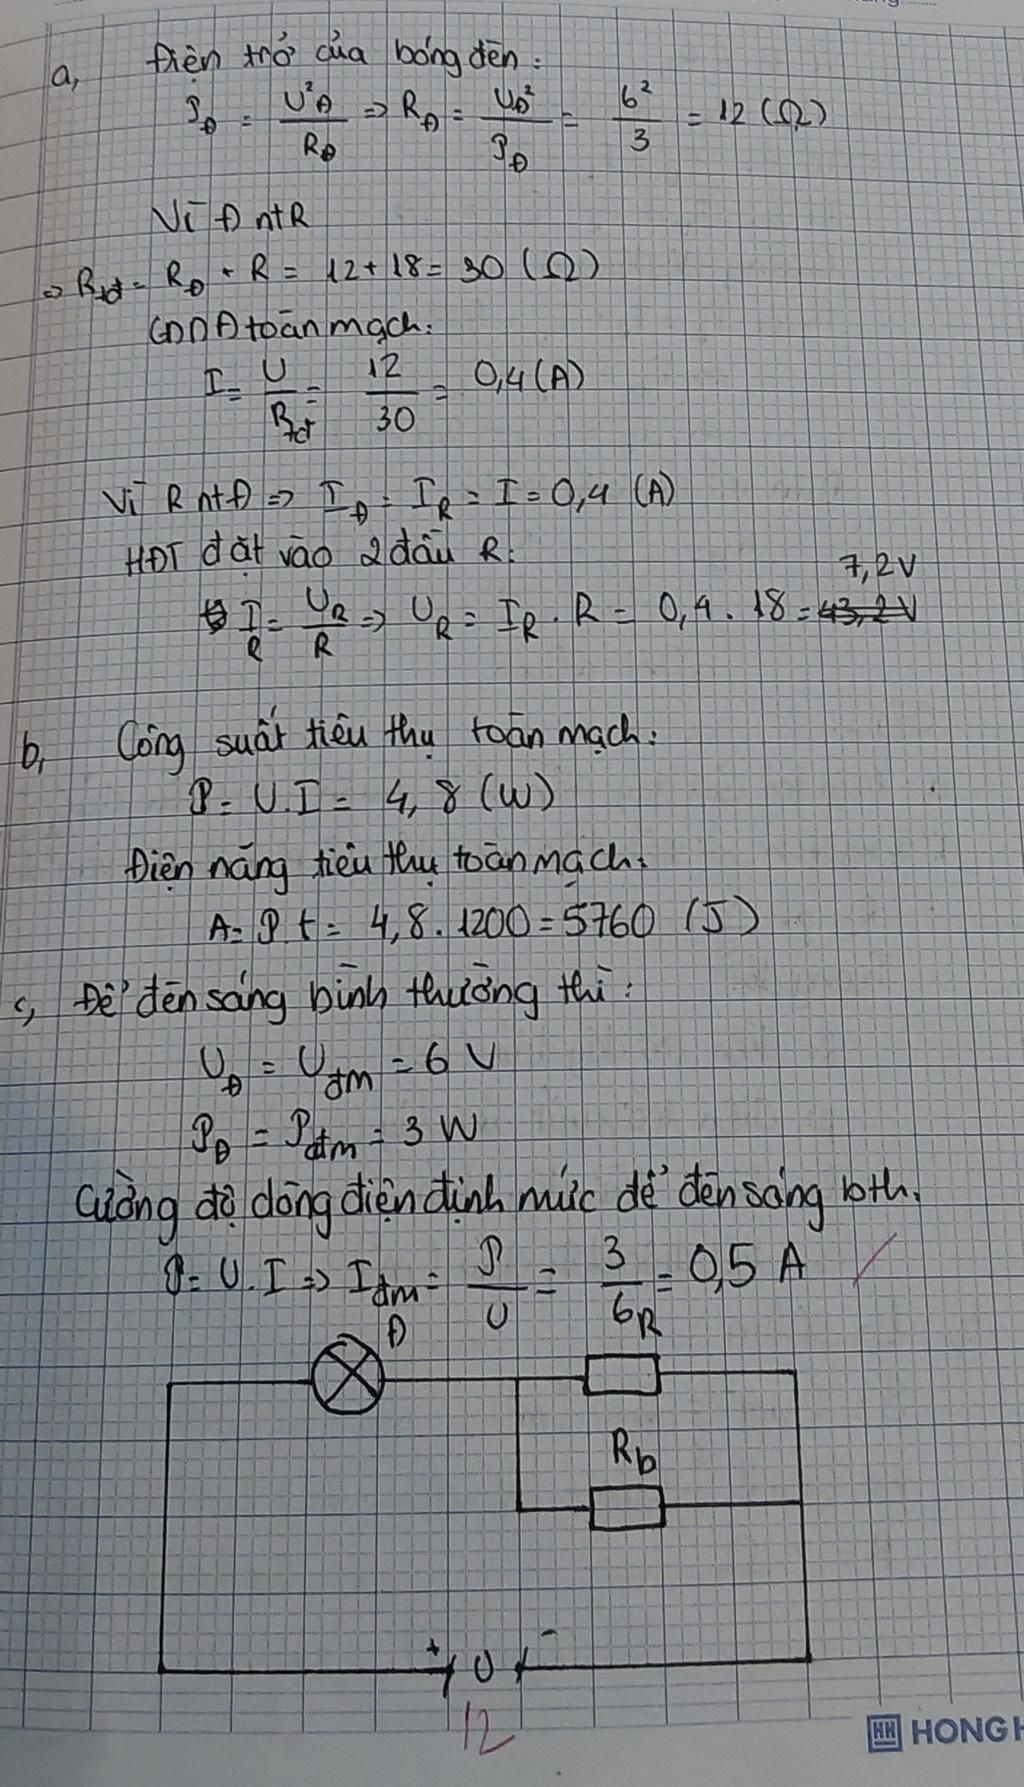 a, Điện trở của bóng đèn:
P_Đ = U²_Đ / R_Đ => R_Đ = U_Đ² / P_Đ = 6² / 3 = 12 (Ω)
Vì Đ nt R
=> R_tđ = R_Đ + R = 12 + 18 = 30 (Ω)
CĐDĐ toàn mạch:
I = U / R_tđ = 12 / 30 = 0,4 (A)
Vì R nt Đ => I_Đ = I_R = I = 0,4 (A)
HĐT đặt vào 2 đầu R:
7,2V
I_R = U_R / R => U_R = I_R . R = 0,4 . 18 = 43,2V
b, Công suất tiêu thụ toàn mạch:
P = U.I = 4,8 (W)
Điện năng tiêu thụ toàn mạch:
A = P.t = 4,8 . 1200 = 5760 (J)
c, Để đèn sáng bình thường thì:
U_Đ = U_đm = 6 V
P_Đ = P_đm = 3 W
Cường độ dòng điện định mức để đèn sáng bth:
P = U.I => I_đm = P / U = 3 / 6 = 0,5 A
Đ
R
R_b
+ U -
12
HONG H